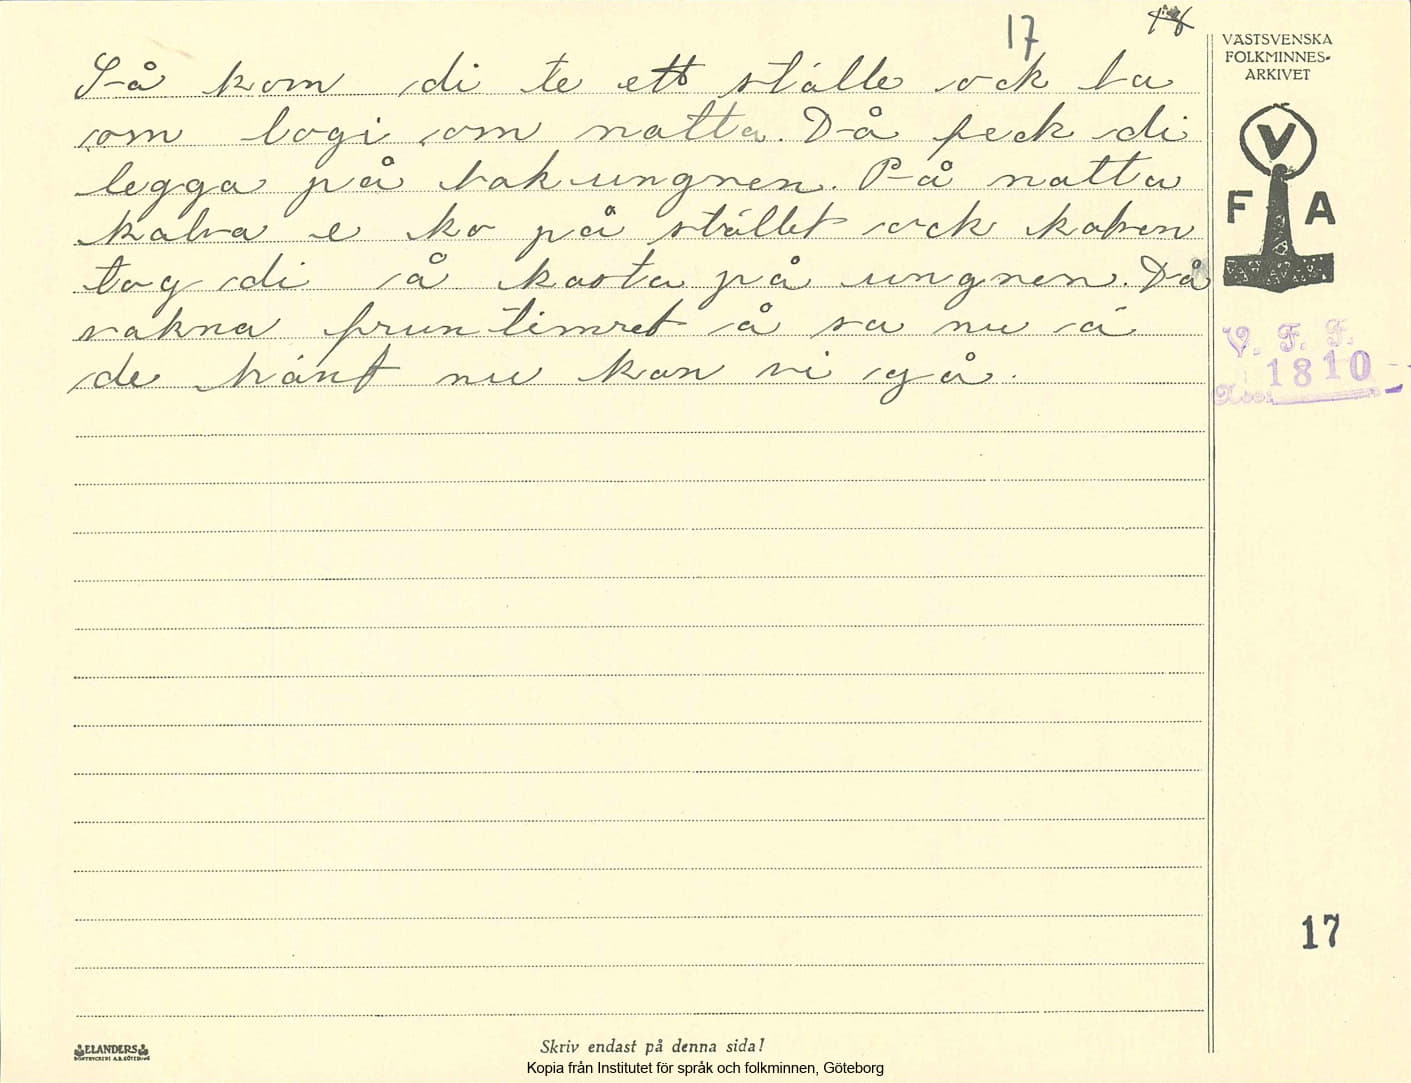 17 18
VÄSTSVENSKA
FOLKMINNES-
ARKIVET
Så kom di te ett ställe ock ba
om logi om natta. Då feck di
legga på bakungnen. På natta
kalva e ko på stället ock kalven
tog di å kasta på ungnen. Då
vakna fruntimret å sa nu ä
de hänt nu kan vi gå.
V
F A
V. F. F.
1810
17
ELANDERS
BOKTRYCKERI A.B. GÖTEBORG
Skriv endast på denna sida!
Kopia från Institutet för språk och folkminnen, Göteborg